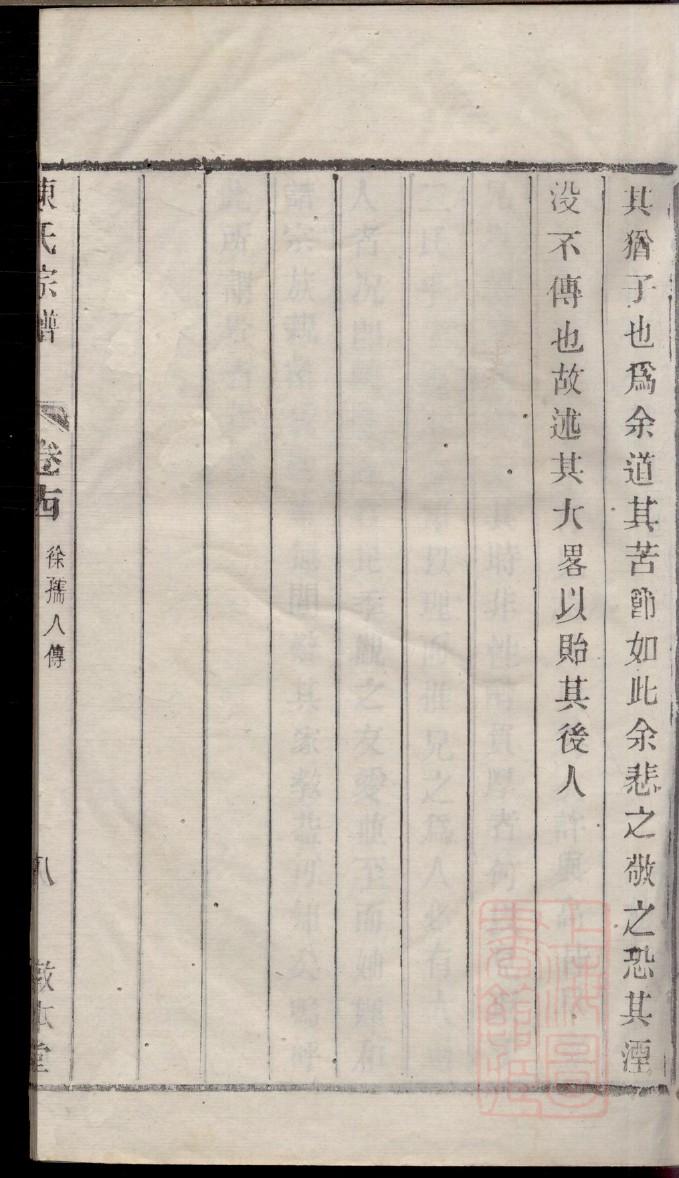 其猶子也爲余道其苦節如此余悲之敬之恐其湮
没不傳也故述其大畧以貽其後人
陳氏宗譜
卷十四
徐孺人傳
八
敦本堂